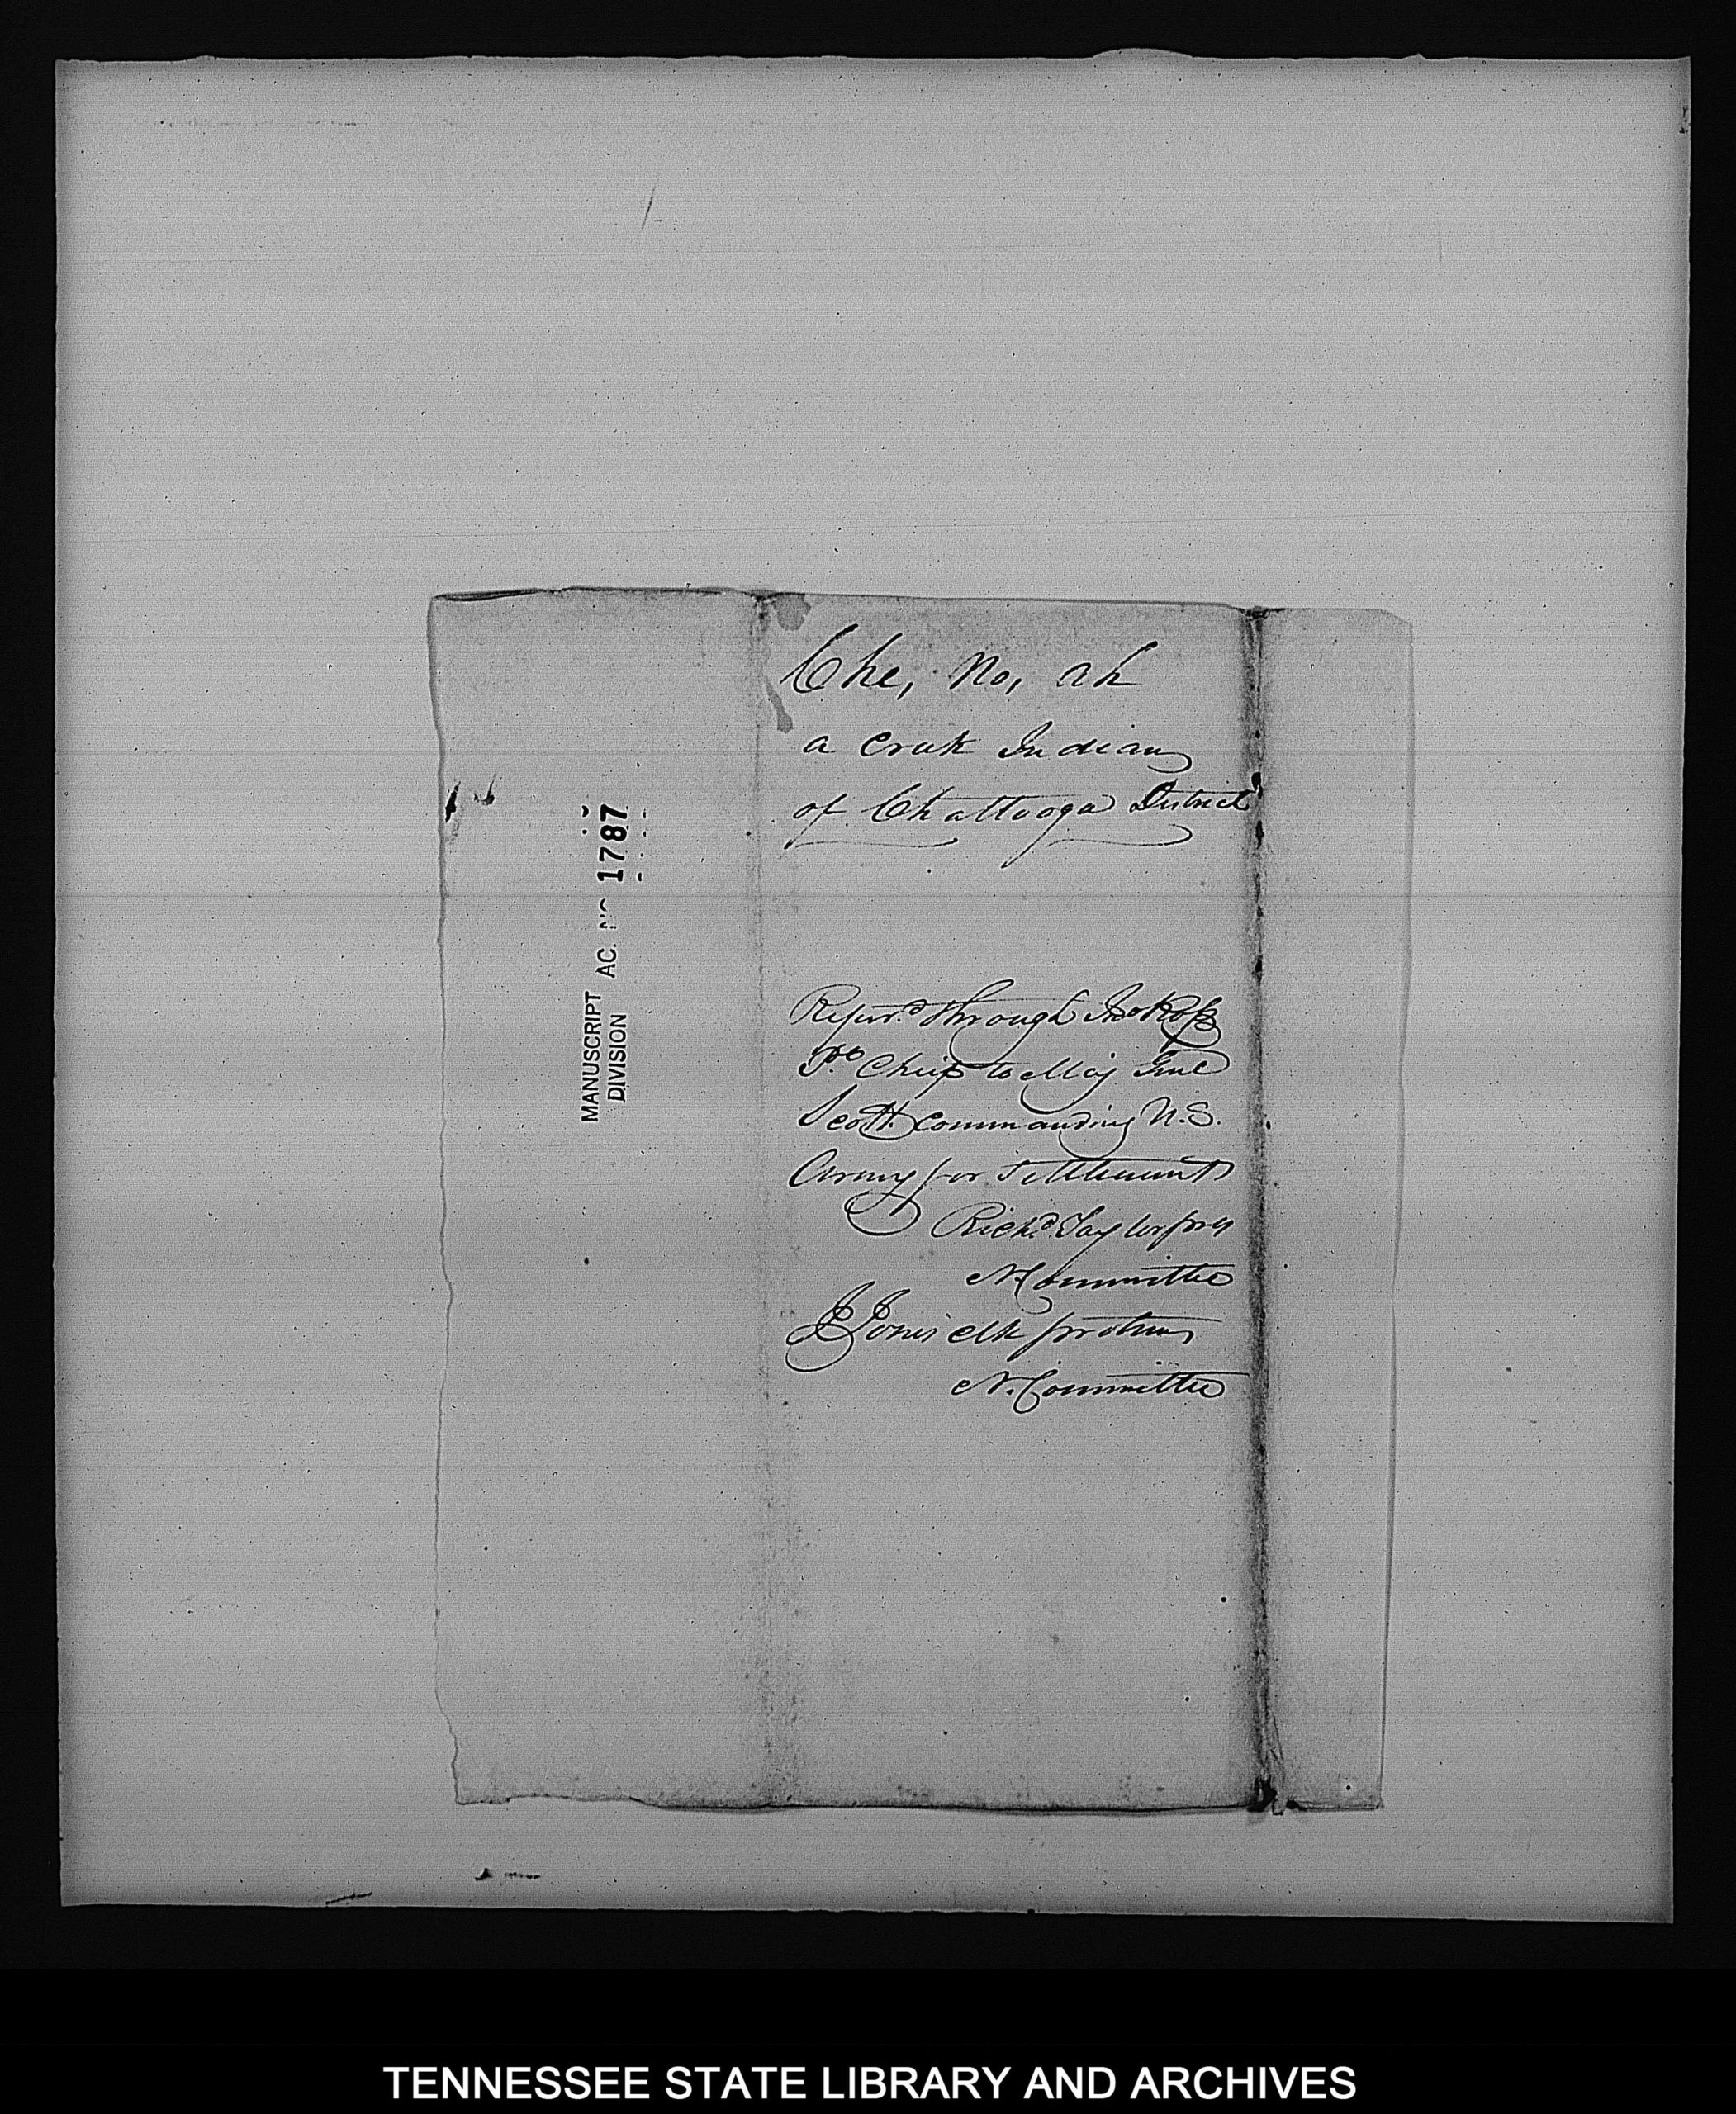 Che, No, ah
a creek Indian
of Chattooga District
Referd. through Jno Ross
Pl. Chief to Maj Genl
Scott commanding U.S.
Army for settlement
Richd. Taylor pres
N. Committee
J Jones clk protem
N. Committee
MANUSCRIPT AC. NO 1787
DIVISION
TENNESSEE STATE LIBRARY AND ARCHIVES